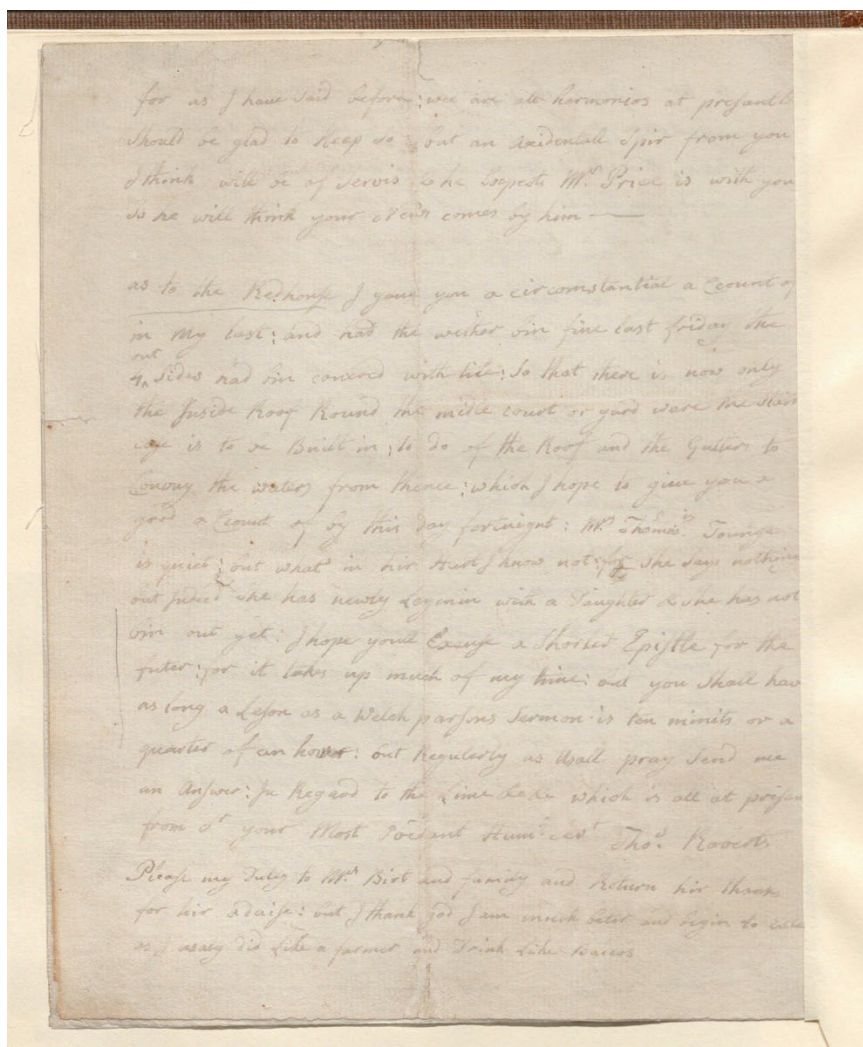 for as I have Said before; wee are all harmonios at presant &
Should be glad to Keep so: but an axidentall Spir from you
I think will be of Servis & he Exspects Mr. Price is with you
So he will think your News comes by him —
as to the Redhouse I gave you a circomstantial a Ccount of
in My last: and had the wether bin fine last friday the
4 out Sides had bin covered with tile: So that there is now only
the Inside Roof Round the midle court or yard were the Stair
case is to be Built in; to do of the Roof and the Gutters to
Convay the waters from thence; which I hope to give you a
good a Ccount of by this day fortnight: Mrs. Thomas Jounge
is quiet; but what in hir Hart I know not: for She Says nothing
but Indeed She has newly Leyenin with a Daughter & She has not
bin out yet: I hope youll Excuse a Shorter Epistle for the
futer; for it takes up much of my time: but you Shall have
as long a Leson as a Welch parsons Sermon is ten minits or a
quarter of an hower: but Regularly as Usall pray Send me
an Answer: In Regard to the Lime which is all at prisan
from Sr your Most Obedant Hum: Ser:t Thos. Roberts
Please my Duty to Mrs Birt and family and Return hir thanks
for hir advise: but I thank god I am much beter and begin to
as I usaly did Like a farmer and Drink Like Baccos